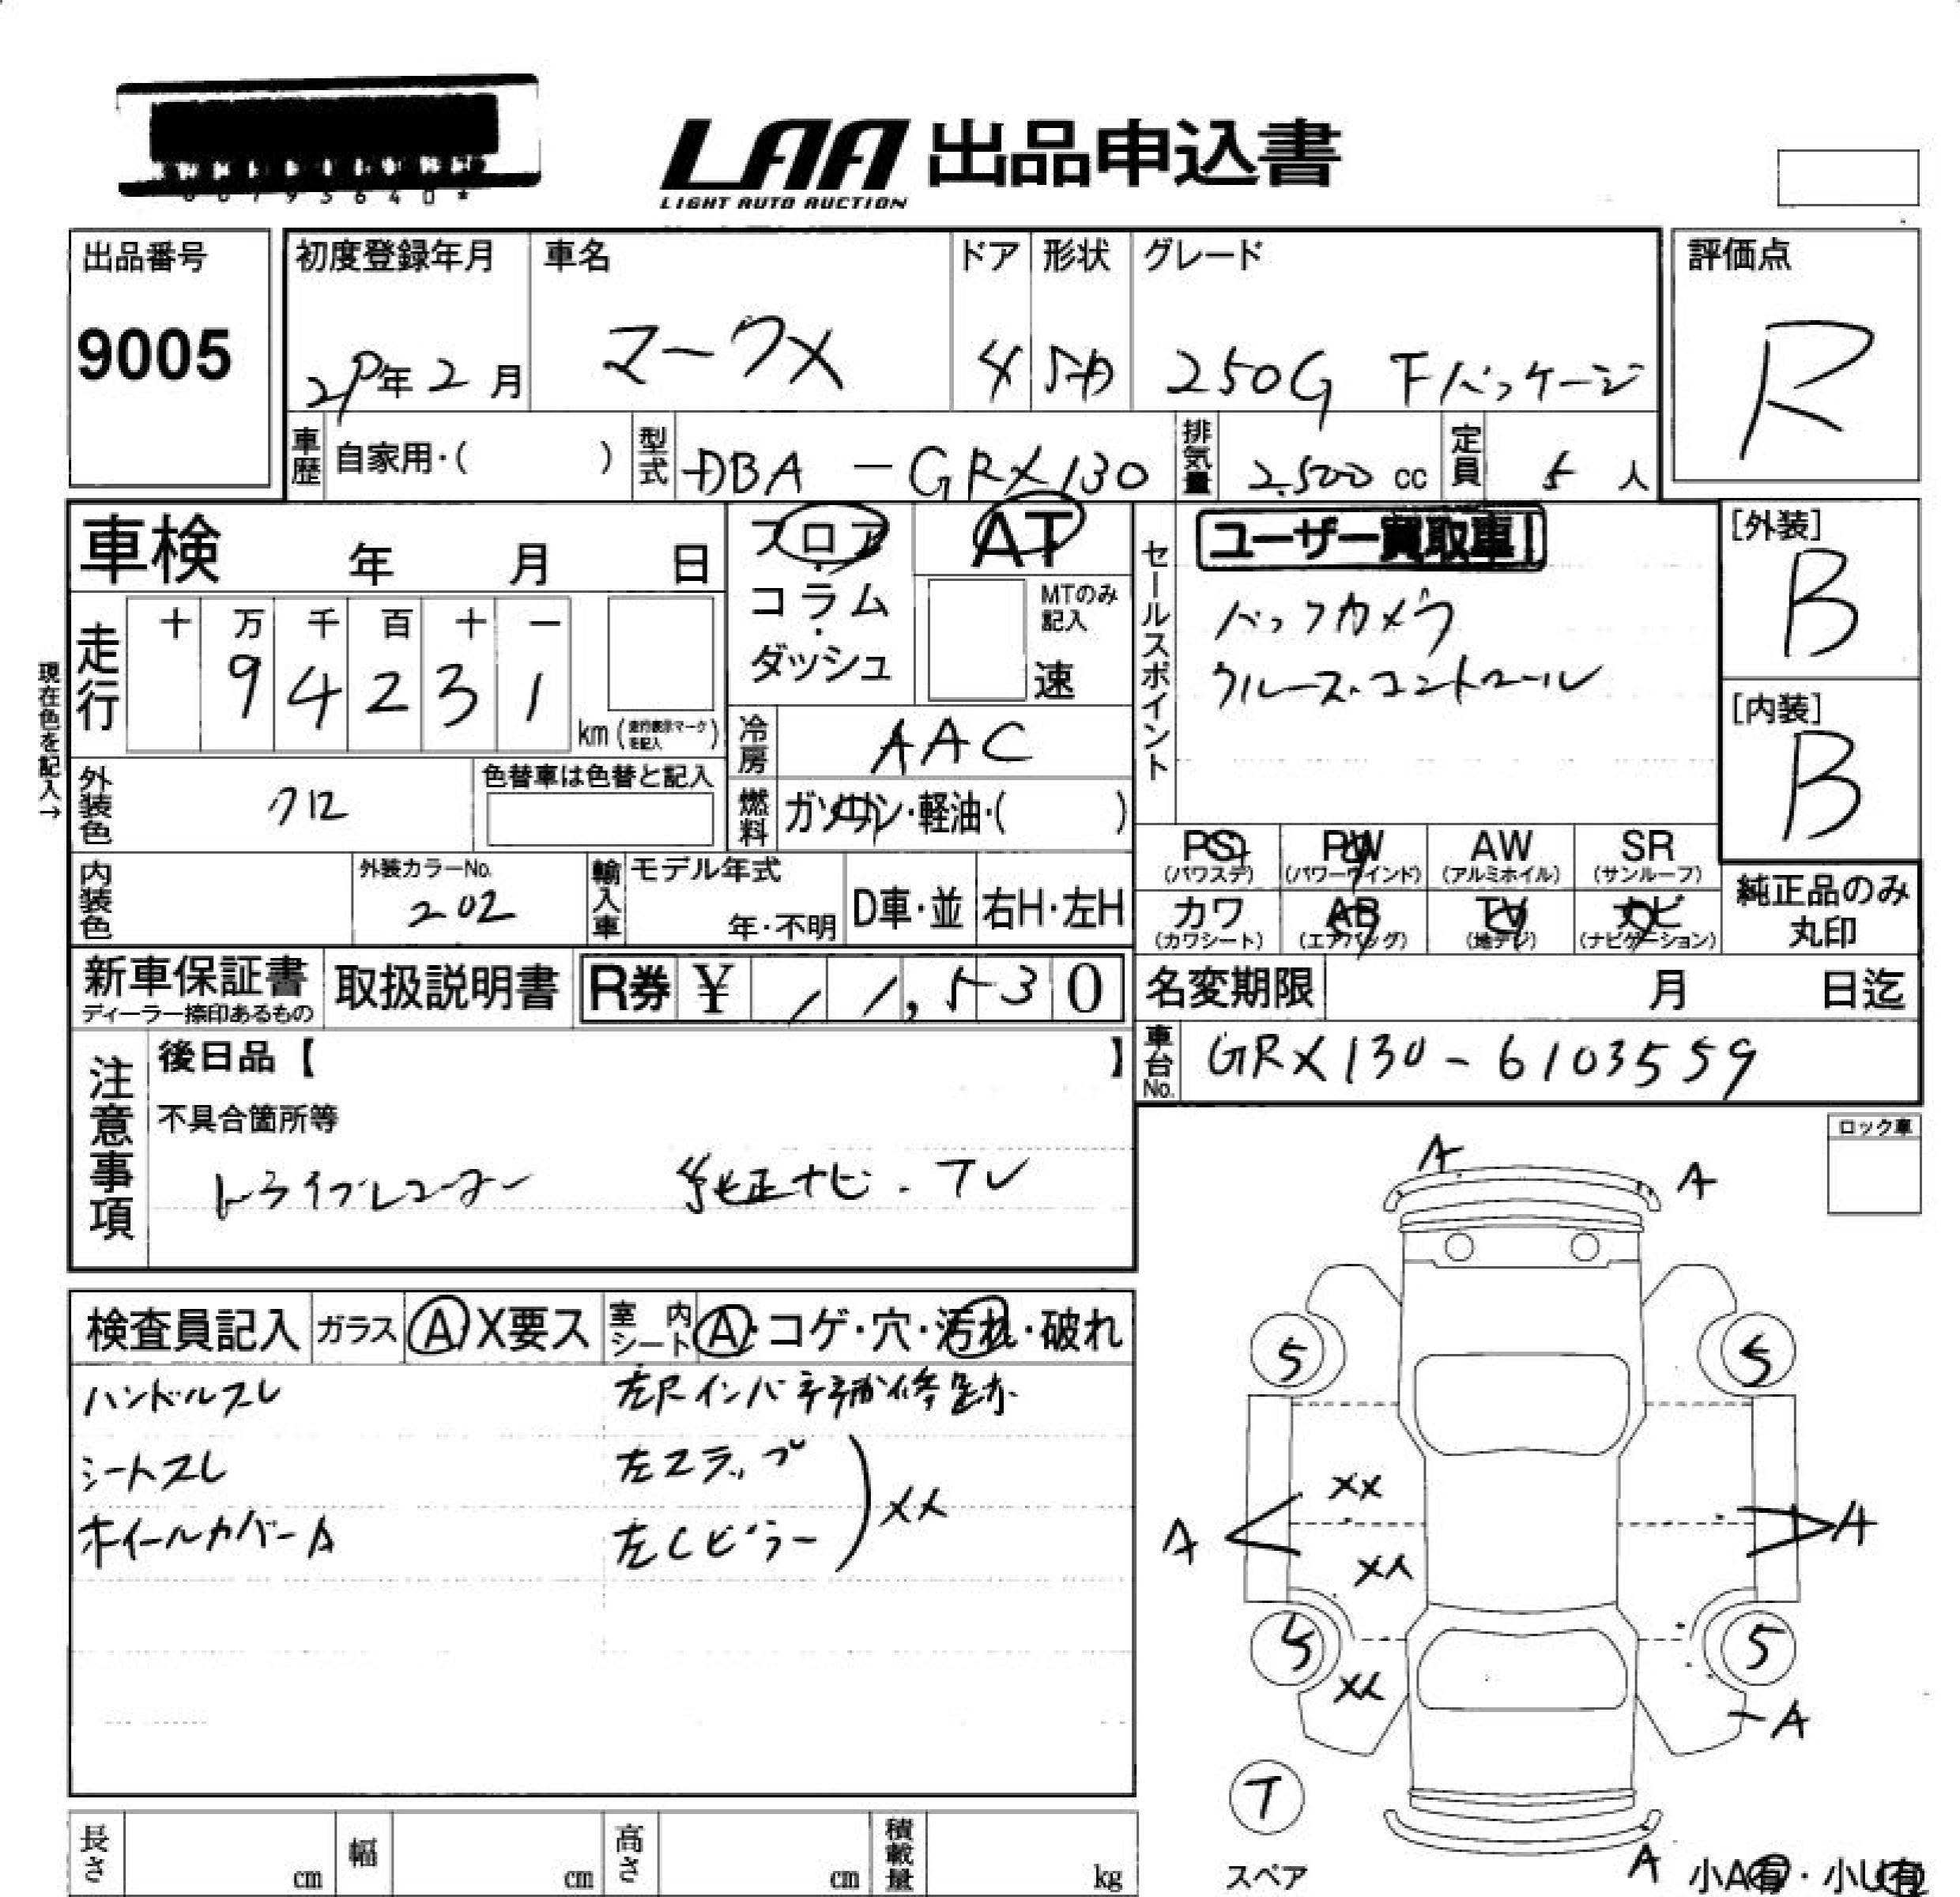 LAA 出品申込書
LIGHT AUTO AUCTION
出品番号
9005
初度登録年月
29年2月
車名
マークX
ドア
4
形状
SD
グレード
250G Fパッケージ
評価点
R
車歴 自家用・( )
型式 DBA-GRX130
排気量 2,500 cc
定員 5 人
車検 年 月 日
フロア・コラム・ダッシュ
AT
MTのみ記入
速
セールスポイント
ユーザー買取車!
バックカメラ
クルーズコントロール
[外装]
B
[内装]
B
現在色を記入→
走行
十 万 千 百 十 一
9 4 2 3 1
km (走行表示マークを記入)
冷房 AAC
燃料 ガソリン・軽油・( )
外装色 クロ
色替車は色替と記入
内装色
外装カラーNo.
202
輸入車
モデル年式
年・不明
D車・並
右H・左H
PS (パワステ)
PW (パワーウインド)
AW (アルミホイル)
SR (サンルーフ)
カワ (カワシート)
AB (エアバッグ)
TV (地デジ)
ナビ (ナビゲーション)
純正品のみ丸印
新車保証書
ディーラー捺印あるもの
取扱説明書
R券 ¥ 1,530
名変期限 月 日迄
車台No. GRX130-6103559
注意事項
後日品【 】
不具合箇所等
ドライブレコーダー 純正ナビ.TV
ロック車
検査員記入
ガラス A X要ス
室内シート A・コゲ・穴・汚れ・破れ
ハンドルスレ
シートスレ
ホイールカバーA
左Rインバ
左ステップ
左Cピラー
XX
A
A
5
5
XX
A
A
XX
5
5
XX
A
T
スペア
A
小A有・小U有
長さ cm
幅 cm
高さ cm
積載量 kg